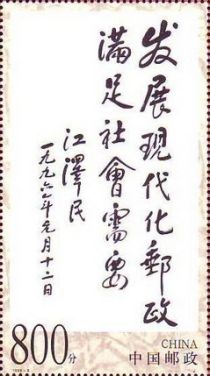 发展現代化郵政
滿足社會需要
江澤民
一九九六年元月十二日
800分
CHINA
中国邮政
1998-3